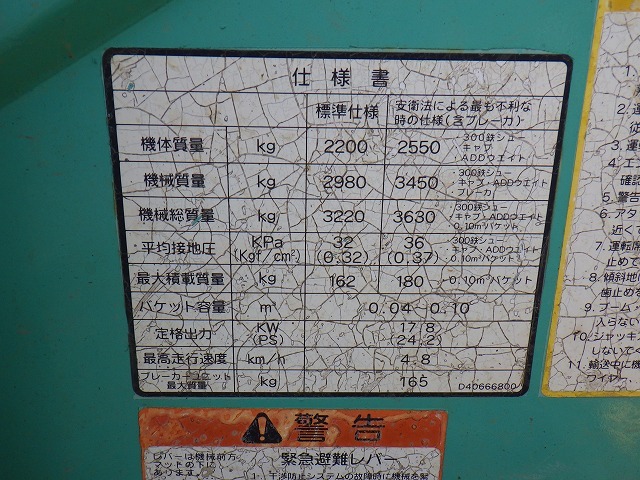 仕様書
標準仕様 安衛法による最も不利な
時の仕様(含ブレーカ)
機体質量 kg 2200 2550 ・300鉄シュー
・キャブ
・ADDウエイト
機械質量 kg 2980 3450 ・300鉄シュー
・キャブ・ADDウエイト
・ブレーカ
機械総質量 kg 3220 3630 ・300鉄シュー
・キャブ・ADDウエイト
・0.10m³バケット
平均接地圧 KPa 32 36 ・300鉄シュー
・キャブ・ADDウエイト
(Kgf/cm²) (0.32) (0.37) ・0.10m³バケット
最大積載質量 kg 162 180 ・0.10m³バケット
バケット容量 m³ 0.04~0.10
定格出力 KW 17.8
(PS) (24.2)
最高走行速度 km/h 4.8
ブレーカーユニット
最大質量 kg 165
D40666800
警告
レバーは機械前方
マットの下に
あります。
緊急避難レバー
1. 干渉防止システムの故障時に機械を緊
1.
2. 運
3. 運転
4. エン
確認
5. 警告
6. アタ
近くで
7. 運転席
止めて
8. 傾斜地
歯止めを
9. ブーム・
入らない
10. ジャッキ
しないで
11. 輸送中に機
ワイヤー